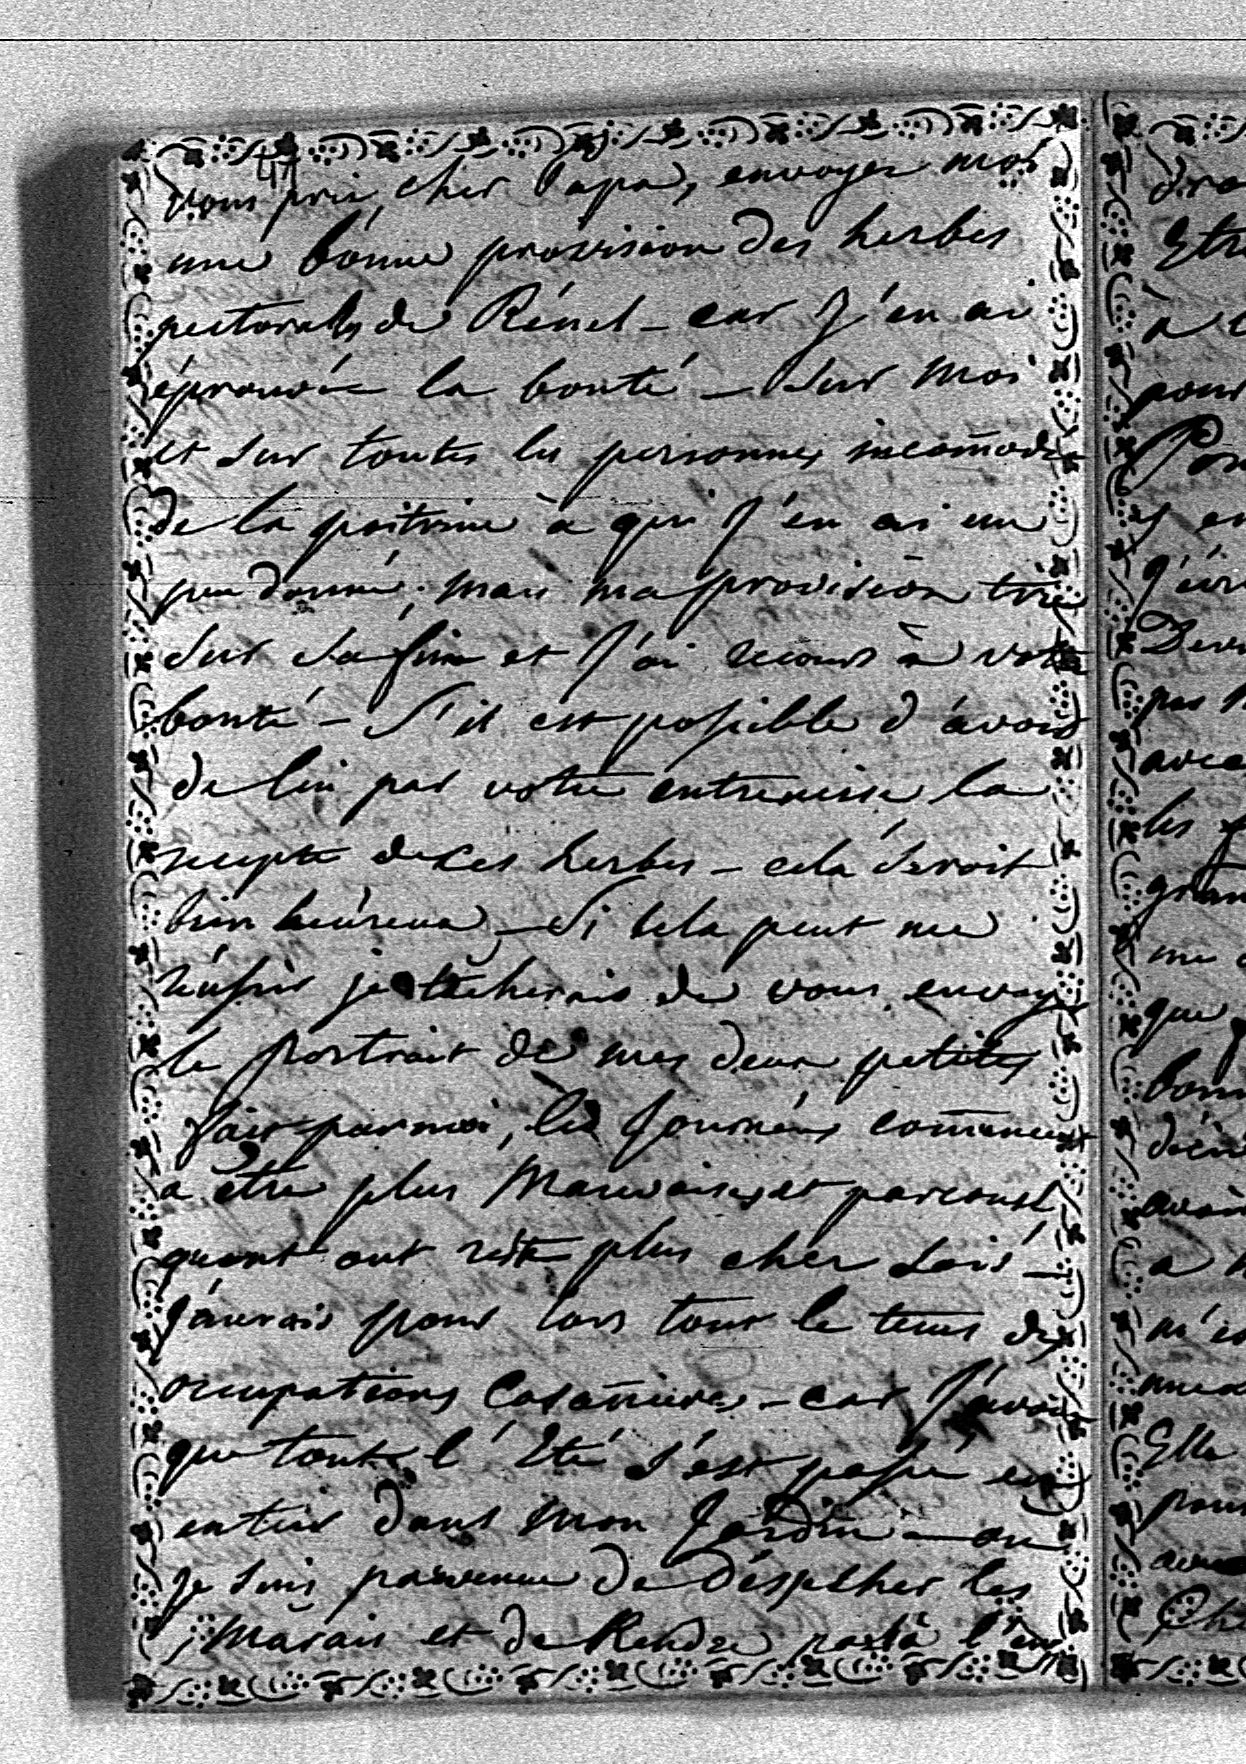 47
vous prie, cher Papa, envoyez moi
une bonne provision des herbes
pectorales de Réinel - car J'en ai
éprouvée la bonté - Sur Moi
et sur toutes les personnes incomodes
de la poitrine à qui J'en ai un
peu donné, mais ma provision tire
sur sa fin et J'ai recours à votre
bonté - S'il est possible d'avoir
de lui par votre entremise la
recepte de ces herbes - cela seroit
bien heureux - Si cela peut me
réussir je tacherais de vous envoyer
le portrait de mes deux petites
fait par moi, les Journées commencent
a être plus Mauvaises et par conséquent
ont reste plus cher soi -
J'aurais pour lors tout le tems des
occupations Casanières - car J'avoue
que tout l'Eté s'est passé en
entier dans mon Jardin - ou
je suis parvenue de Déssecher les
Marais et de Rendre par là l'air